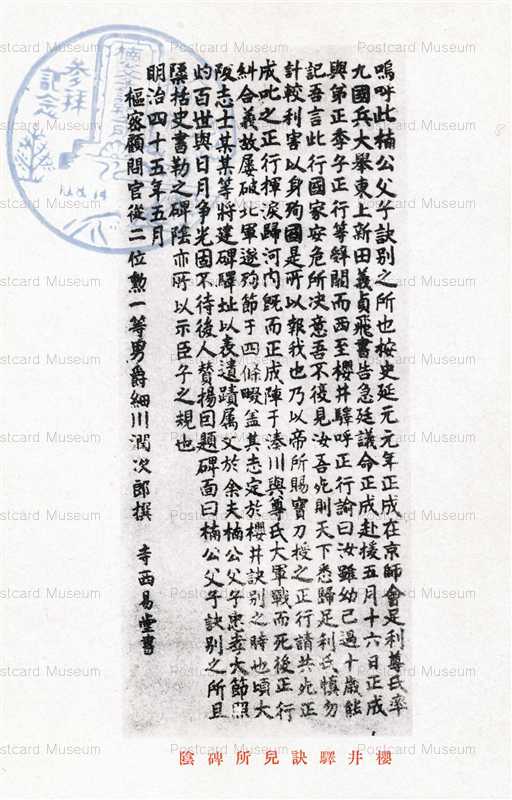 嗚呼此楠公父子訣別之所也按史延元元年正成在京師會足利尊氏率
九國兵大擧東上新田義貞飛書告急廷議命正成赴援五月十六日正成
與弟正季子正行等辭闕而西至櫻井驛呼正行諭曰汝雖幼已過十歳能
記吾言此行國家安危所決意吾不復見汝吾死則天下悉歸足利氏愼勿
計較利害以身殉國是所以報我也乃以帝所賜寶刀授之正行請共死正
成叱之正行揮涙歸河内既而正成陣于湊川與尊氏大軍戰而死後正行
糾合義故屢破北軍遂殪節于四條畷盖其志定於櫻井訣別之時也頃大
阪志士某某等將建碑驛址以表遺蹟属文於余夫楠公父子忠孝大節照
灼百世與日月争光固不待後人賛揚因題碑面曰楠公父子訣別之所且
檃括史書勒之碑陰亦所以示臣子之規也
明治四十五年五月
樞密顧問官從二位勲一等男爵細川潤次郎撰 寺西易堂書
櫻井驛訣兒所碑陰
参拜
記念
Postcard Museum